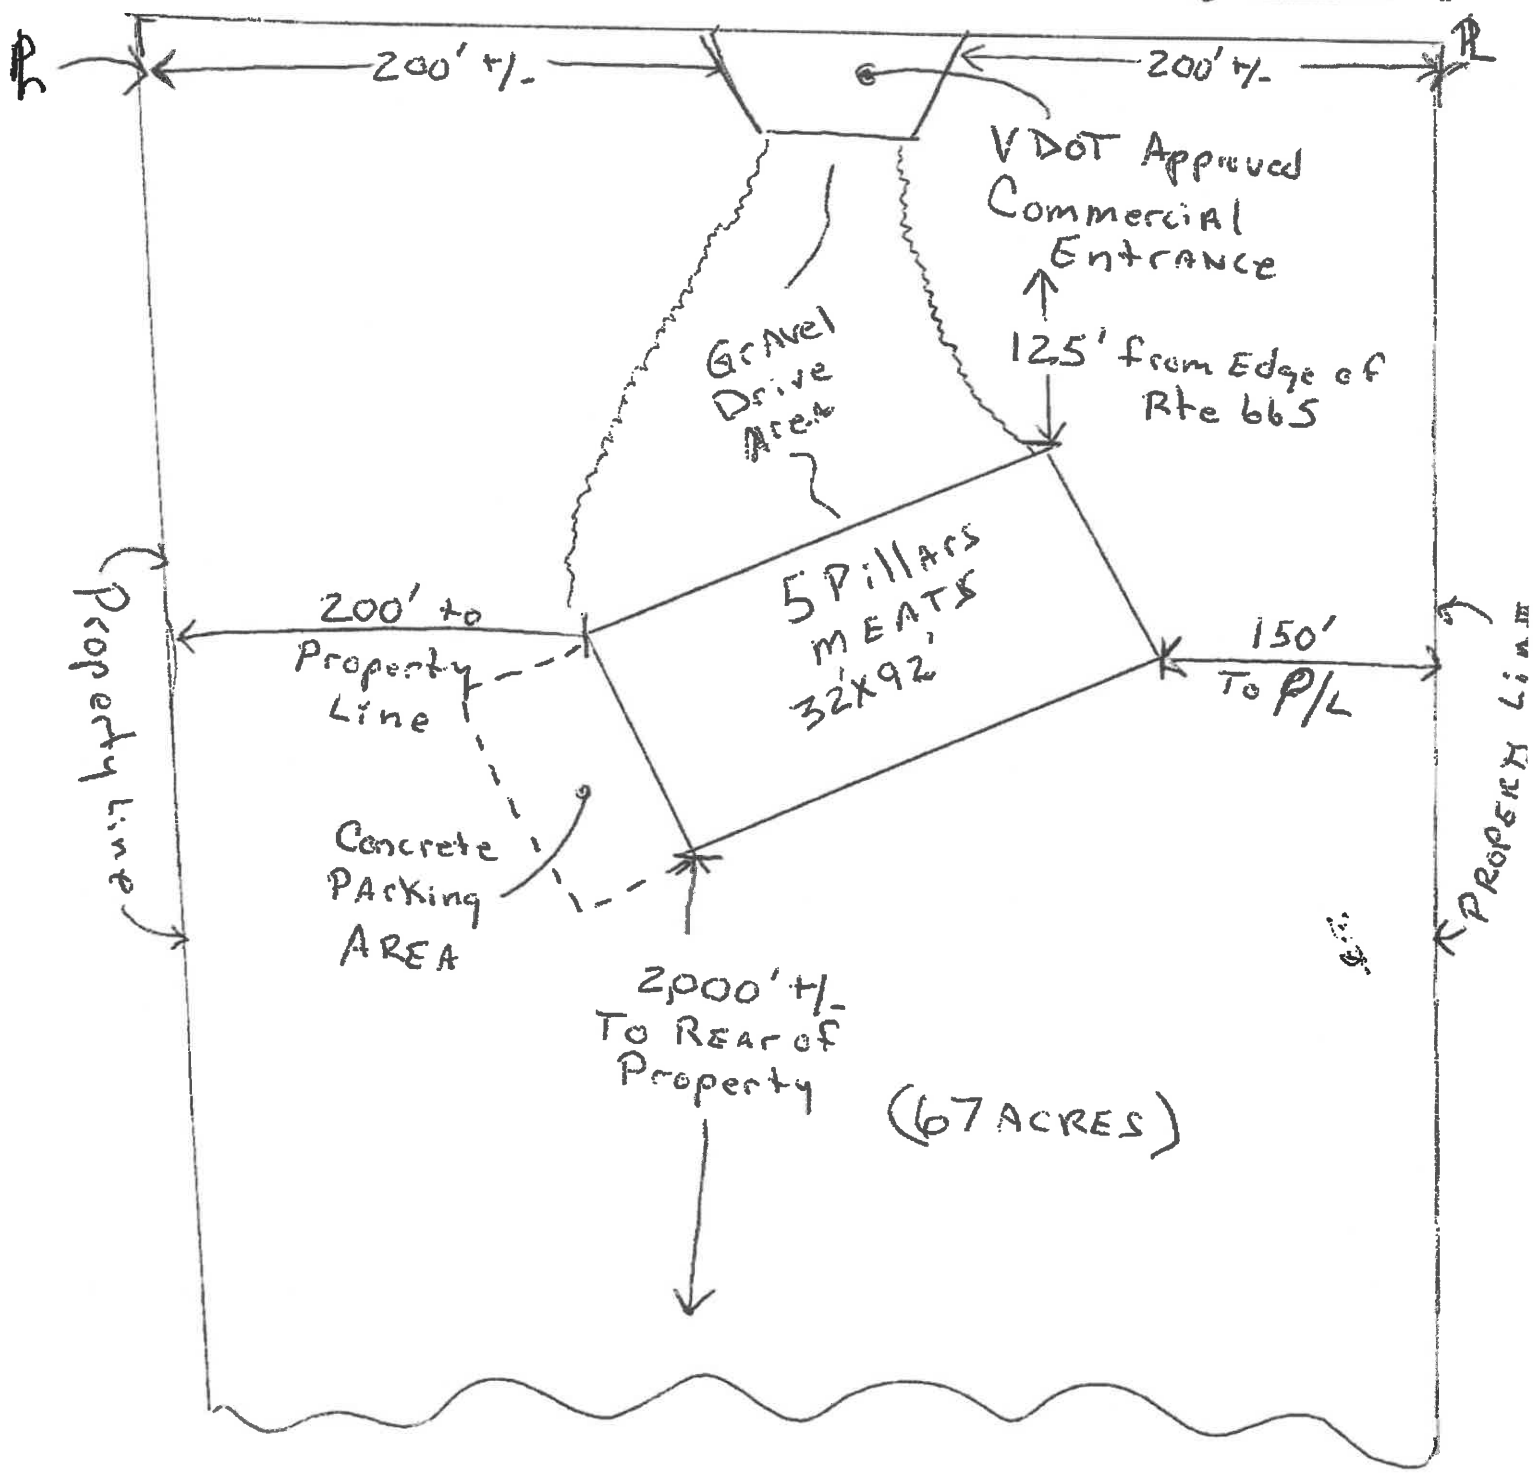 PL
200' +/-
200' +/-
PL
VDOT Approved
Commercial
Entrance
125' from Edge of
Rte 665
Gravel
Drive
Area
5 Pillars
MEATS
32'x92'
200' to
Property
Line
150'
To P/L
Property line
PROPERTY LINE
Concrete
PArking
AREA
2,000' +/-
To REar of
Property
(67 ACRES)